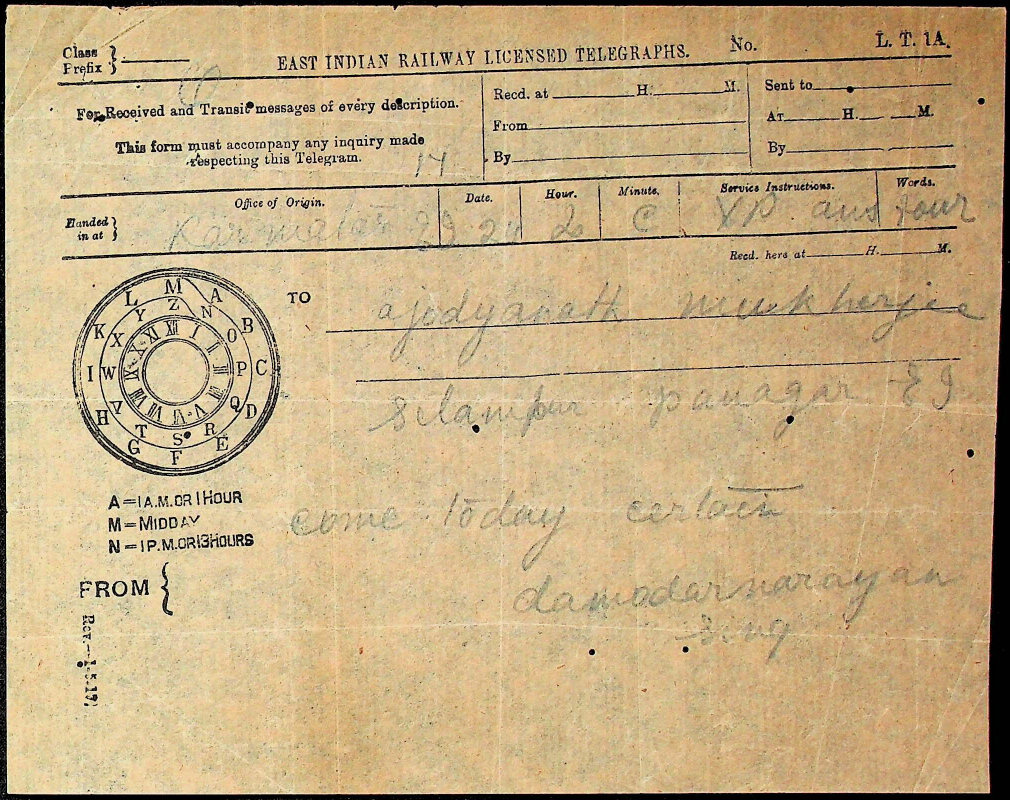 Class
Prefix }
EAST INDIAN RAILWAY LICENSED TELEGRAPHS.
No.
L. T. 1A.
For Received and Transit messages of every description.
This form must accompany any inquiry made
respecting this Telegram.
17
Recd. at H. M.
From
By
Sent to
At H. M.
By
Office of Origin. Date. Hour. Minute. Service Instructions. Words.
Handed
in at }
Karmatar 23 24 2 C XP ans four
Recd. here at H. M.
TO
ajodyanath mukherjee
silampur panagar EI
come today certain
damodarnarayan
sing
L M A B C D E F G H I K
Y Z N O P Q R S T V W X
XII I II III IIII V VI VII VIII IX X XI
A = 1 A.M. OR 1 HOUR
M = MIDDAY
N = 1 P.M. OR 13 HOURS
FROM {
Rev.—1-5-17.